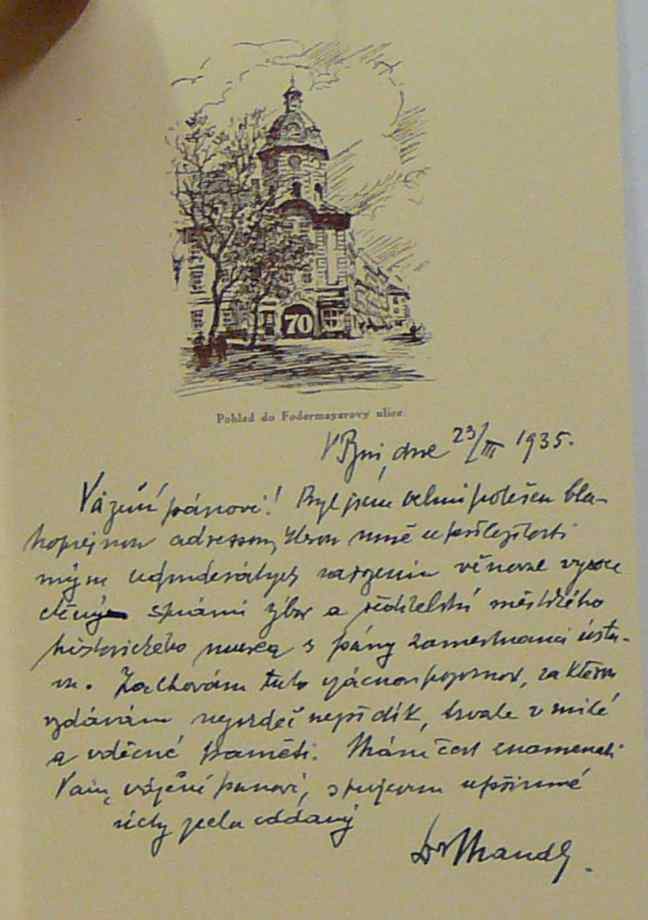 70
Pohled do Fodermayerovy ulice.
V Plzni, dne 23/III 1935.
Vážení pánové! Byl jsem velmi potěšen bla-
hopřejnou adressou, kterou mně u příležitosti
mých sedmdesátých narozenin věnoval vysoce
ctěný správní výbor a ředitelství městského
historického musea s pány zaměstnanci ústa-
vu. Zachovám tuto vzácnou pozornost, za kterou
vzdávám nejsrdečnejší dík, trvale v milé
a vděčné paměti. Mám čest znamenati
Vám, vážení pánové, s projevem upřímné
úcty zcela oddaný
Dr Mandl.